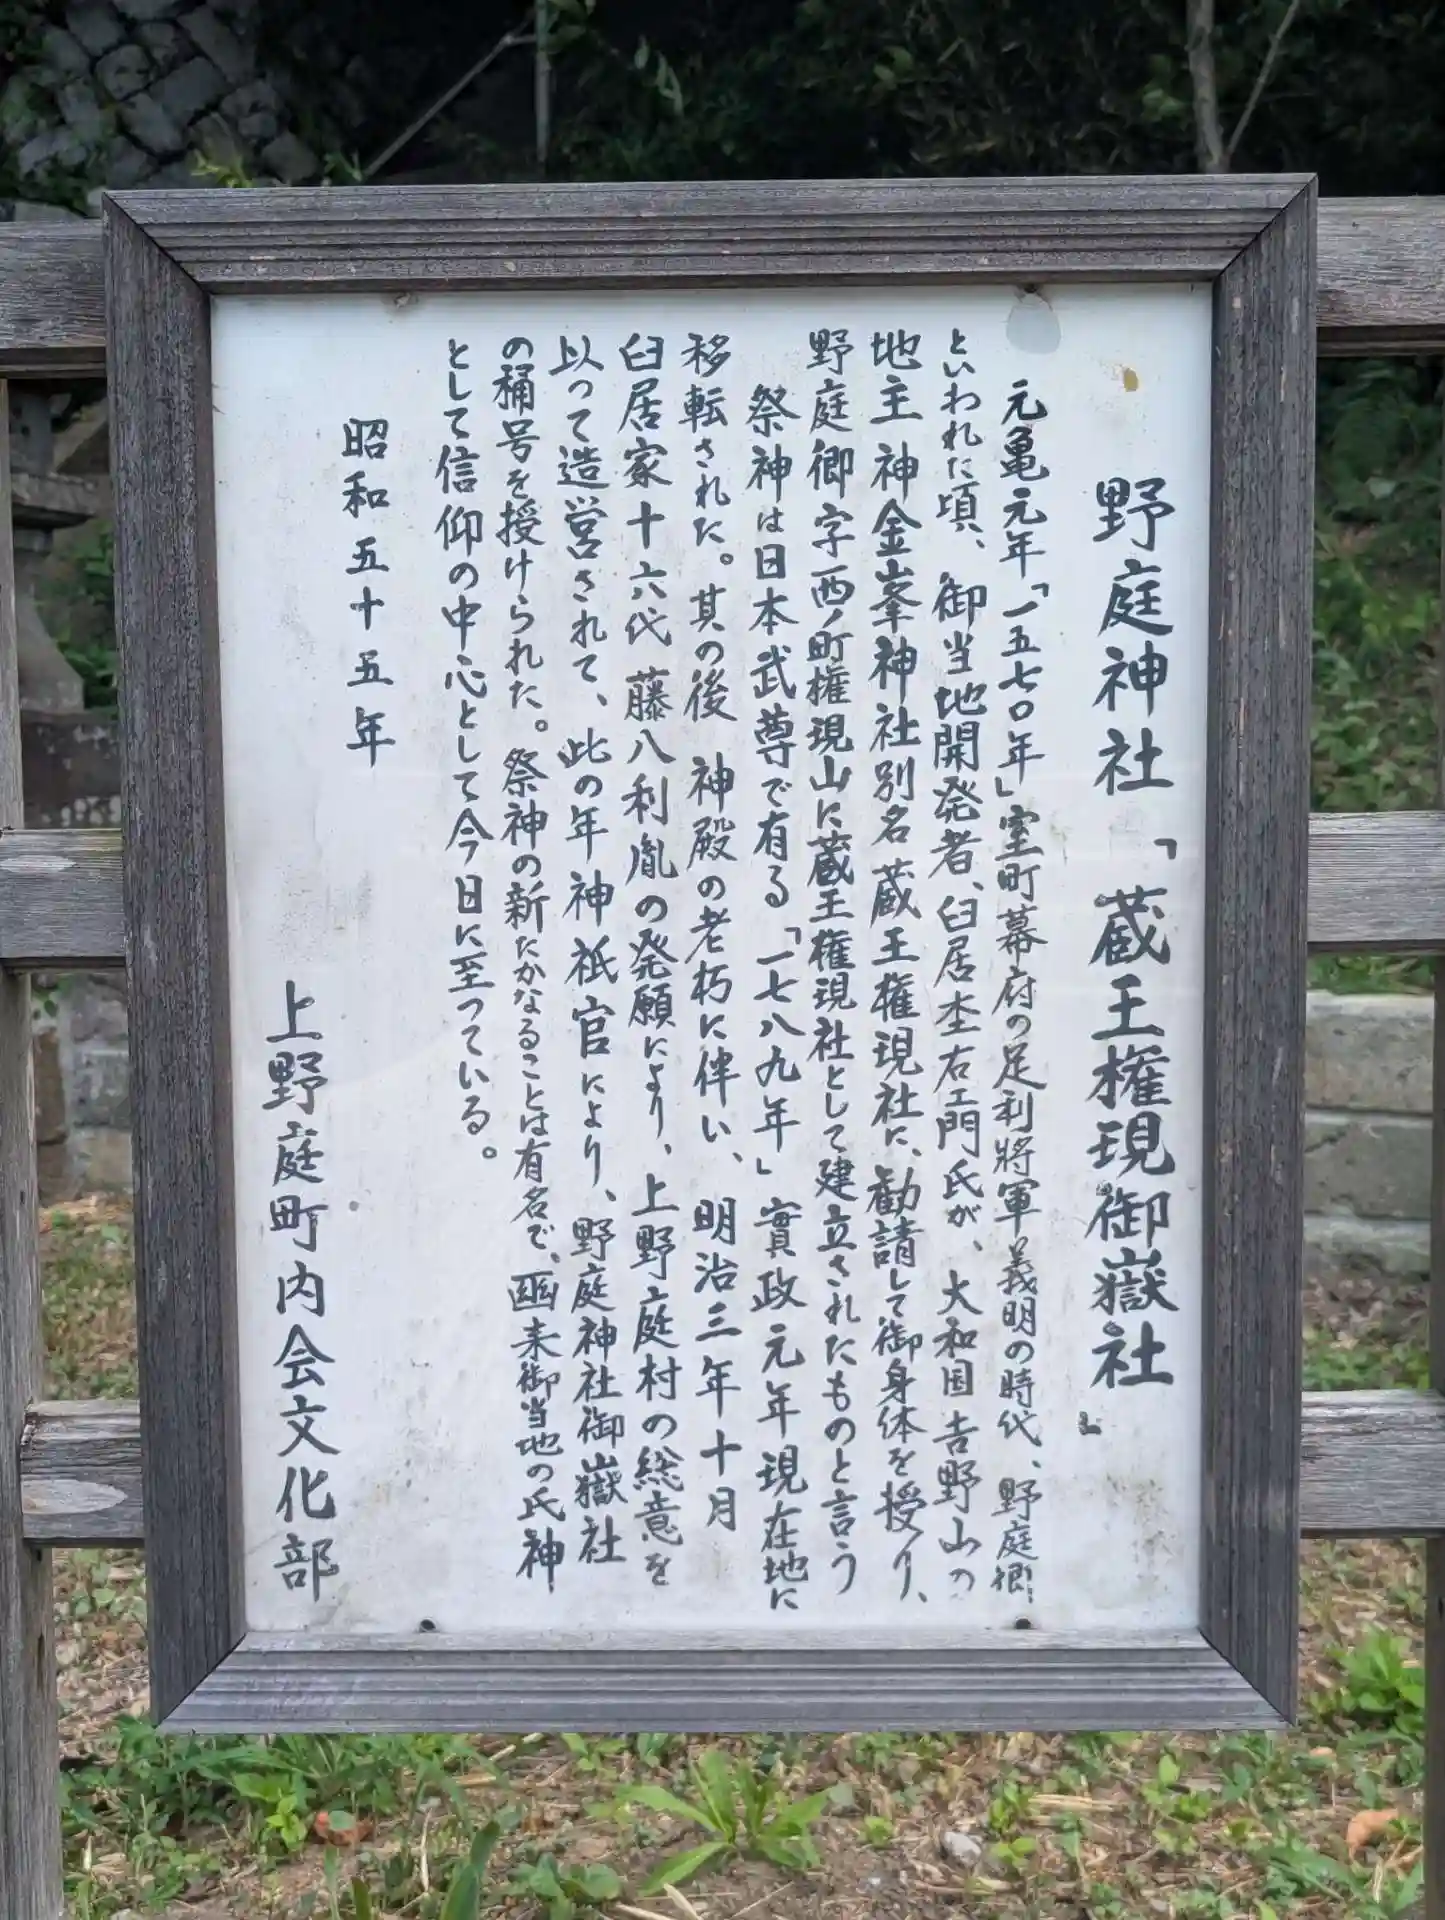 野庭神社「蔵王権現御嶽社」
元亀元年「一五七〇年」室町幕府の足利将軍義明の時代、野庭郷
といわれた頃、御当地開発者、臼居杢右ェ門氏が、大和国吉野山の
地主神金峯神社別名蔵王権現社に、勧請して御身体を授り、
野庭郷字西ノ町権現山に蔵王権現社として建立されたものと言う
祭神は日本武尊で有る「一七八九年」實政元年現在地に
移転された。其の後神殿の老朽に伴い、明治三年十月
臼居家十六代藤八利胤の発願により、上野庭村の総意を
以って造営されて、此の年神祇官により、野庭神社御嶽社
の称号を授けられた。祭神の新たかなることは有名で、爾来御当地の氏神
として信仰の中心として今日に至っている。
昭和五十五年
上野庭町内会文化部